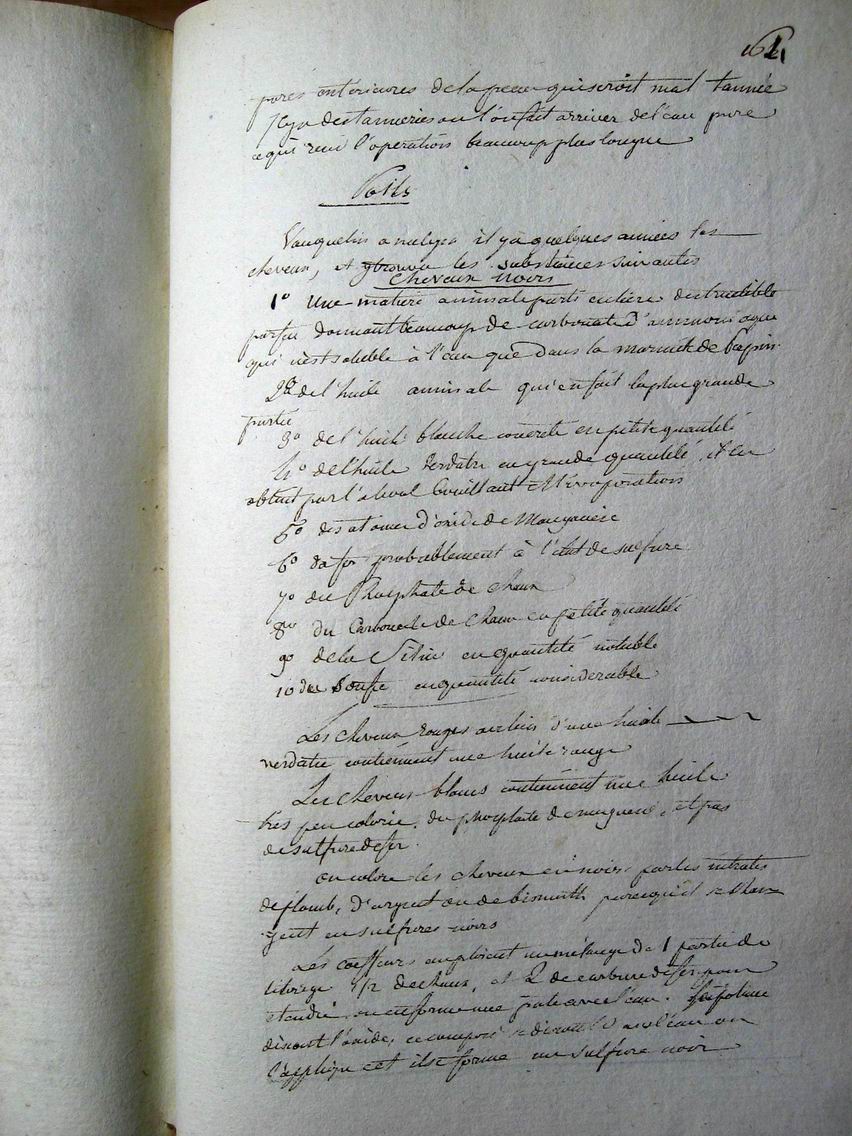 164
pores intérieures de la peau qui seroit mal tannée
Il y a des tanneries ou l'on fait arriver de l'eau pure
ce qui rend l'operation beaucoup plus longue
Poils
Vauquelin analysa il y a quelques années les
cheveux, et y trouva les substances suivantes
Cheveux noirs
1° Une matiere animale parti entiere destructible
par feu donnant beaucoup de carbonate d'ammoniaque
qui n'est soluble à l'eau que dans la marmite de Papin.
2° de l'huile animale qui en fait la plus grande
partie
3° de l'huile blanche concrete en petite quantité
4° de l'huile verdatre en grande quantité, il l'a
obtint par l'alcool bouillant et l'évaporation
5° des atomes d'oxide de Manganèse
6° du fer probablement à l'état de sulfure
7° du Phosphate de chaux
8° du Carbonate de Chaux en petite quantité
9° de la Silice en quantité notable
10 du Soufre en quantité considerable
Les cheveux rouges au lieu d'une huile
verdatre contiennent une huile rouge
Les cheveux blancs contiennent une huile
très peu colorée, du phosphate de magnesie, et pas
de sulfure de fer.
on colore les cheveux en noir par les nitrates
de plomb, d'argent ou de bismuth parce qu'il se chan
gent en sulfures noirs
Les coeffeurs emploient un mélange de 1 partie de
litharge 1/2 de chaux, et 2 de carbure de fer pour
etendre on en forme une pate avec l'eau.
dissout l'oxide, ce composé se dissout dans l'eau on
l'applique et il se forme un sulfure noir